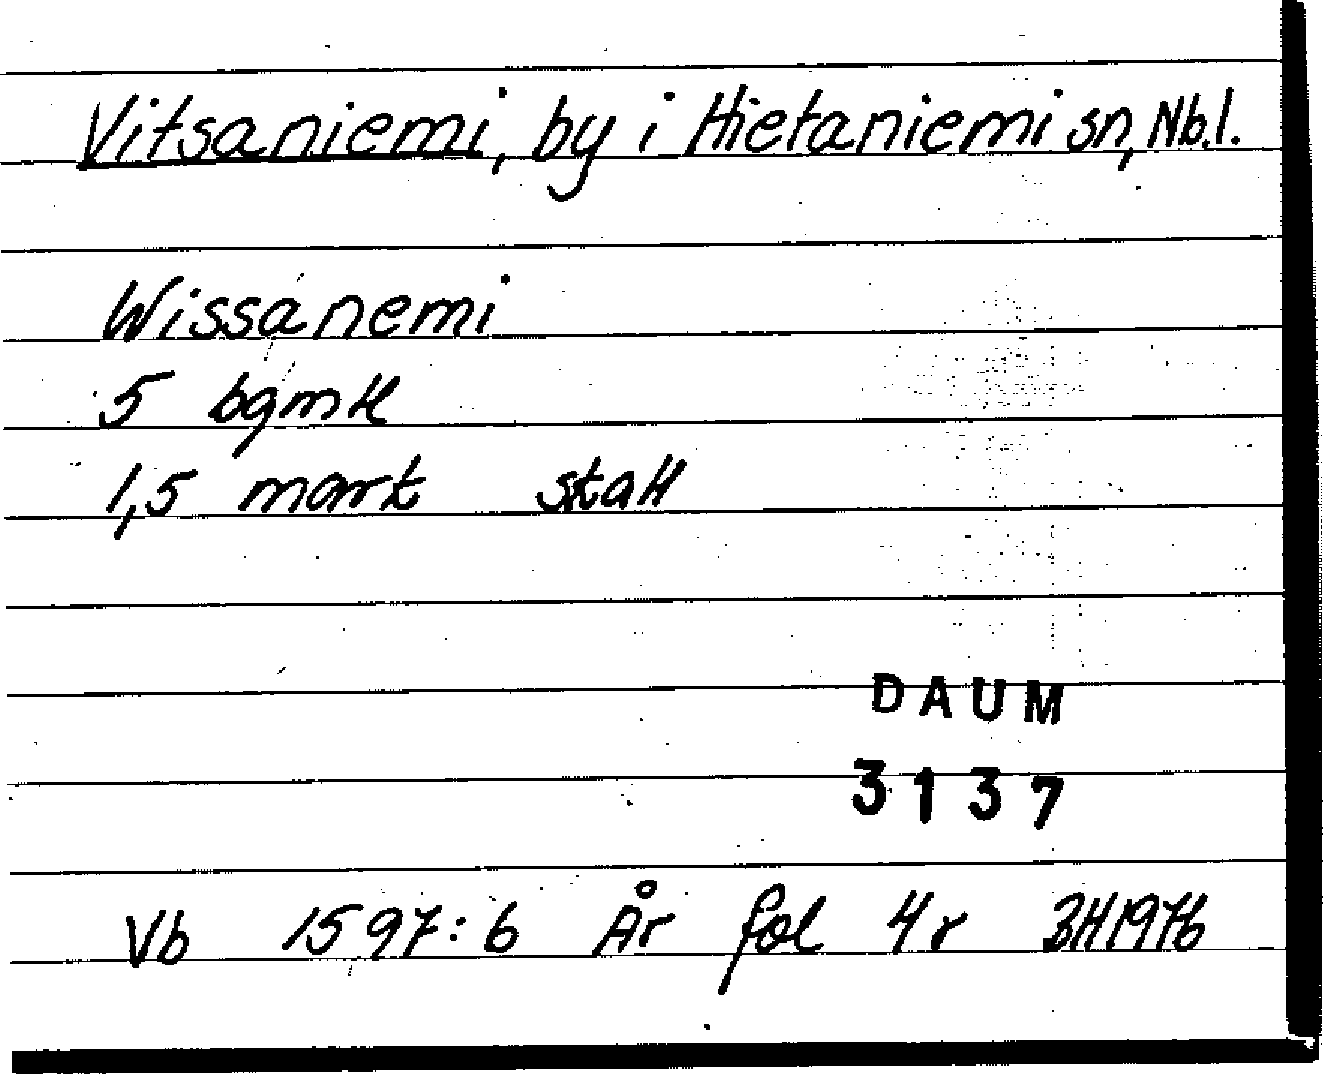 Vitsaniemi, by i Hietaniemi sn, Nb.l.
Wissanemi
5 bgmtl
1,5 mark skatt
DAUM
3137
Vb 1597:6 År fol 4r BH1976